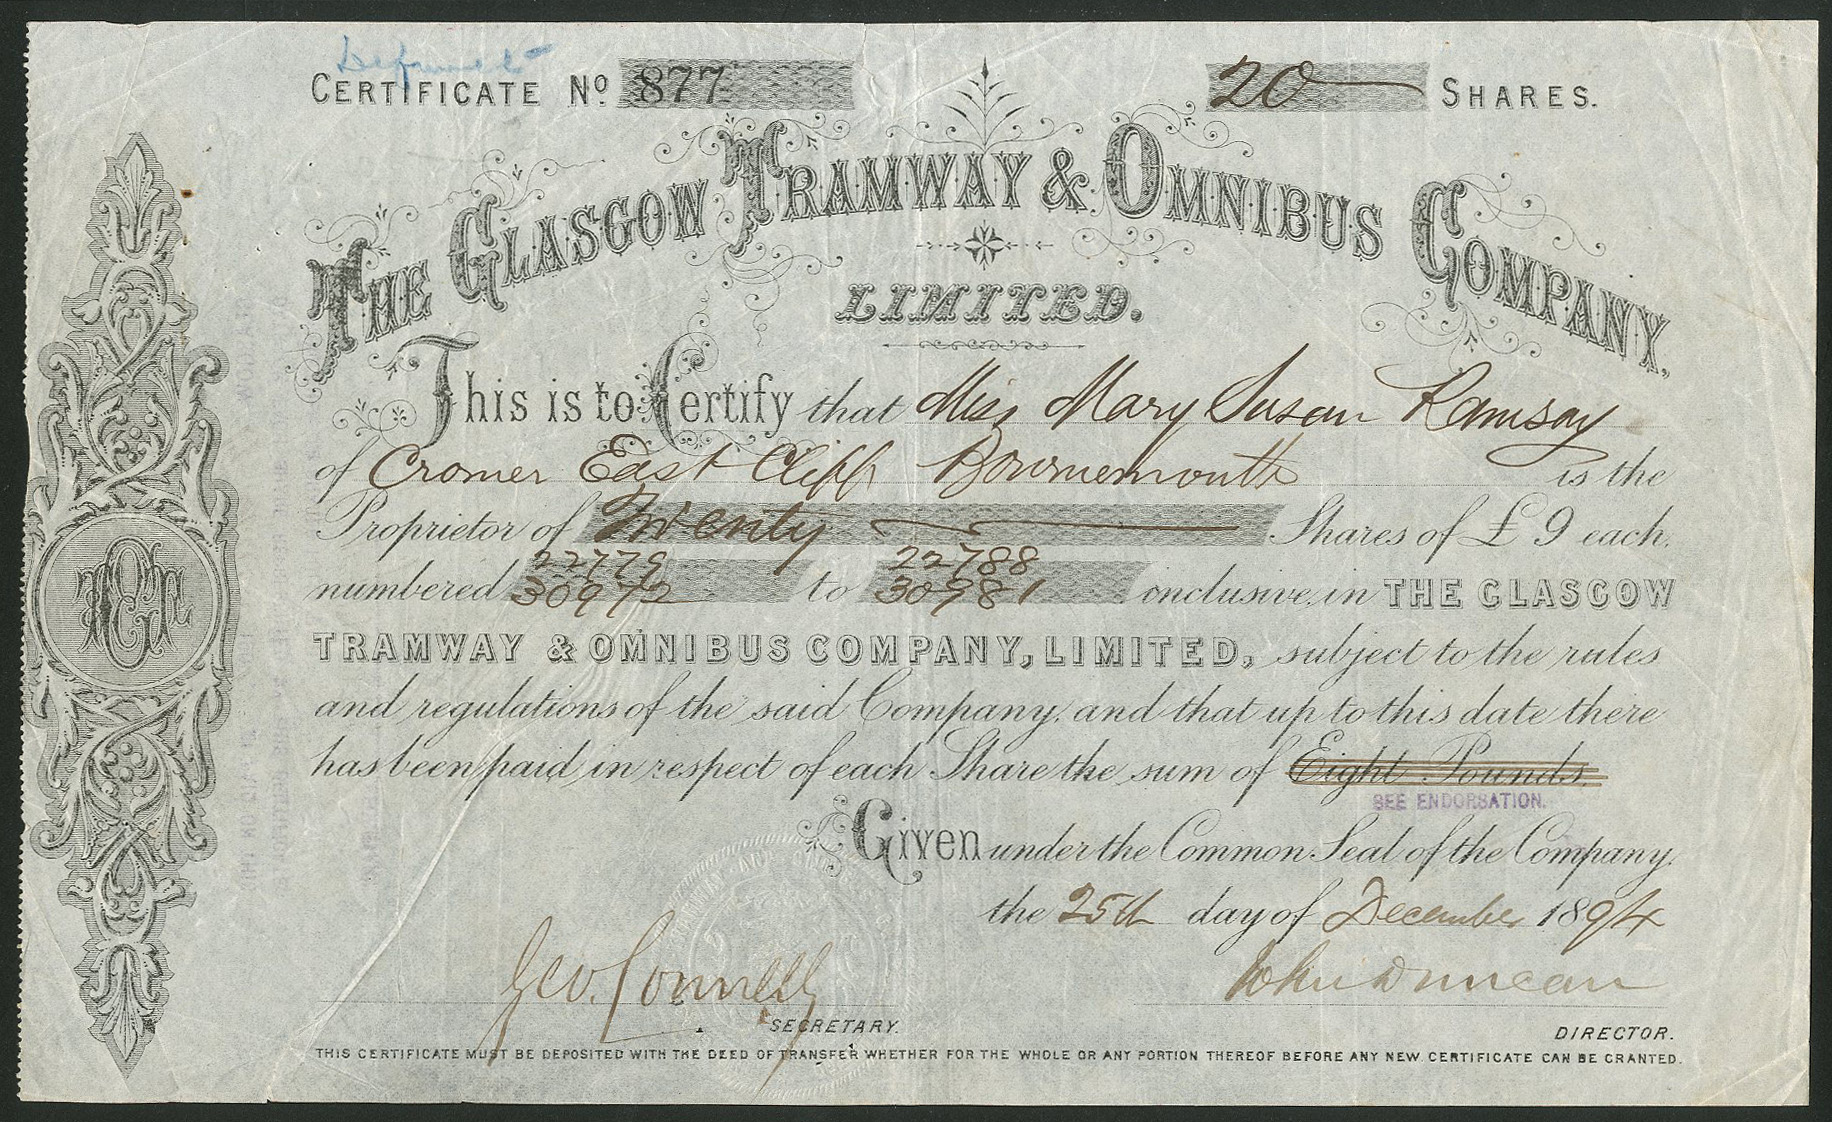 CERTIFICATE No 877
20 SHARES.
THE GLASGOW TRAMWAY & OMNIBUS COMPANY,
LIMITED.
This is to Certify that Miss Mary Susan Ramsay
of Cromer East Cliff Bournemouth is the
Proprietor of Twenty Shares of £9 each,
22779 22788
numbered 30972 to 30981 inclusive, in THE GLASGOW
TRAMWAY & OMNIBUS COMPANY, LIMITED, subject to the rules
and regulations of the said Company, and that up to this date there
has been paid in respect of each Share the sum of Eight Pounds.
SEE ENDORSATION.
Given under the Common Seal of the Company,
the 25th day of December 1894
Geo. Connelly
John Duncan
SECRETARY.
DIRECTOR.
THIS CERTIFICATE MUST BE DEPOSITED WITH THE DEED OF TRANSFER WHETHER FOR THE WHOLE OR ANY PORTION THEREOF BEFORE ANY NEW CERTIFICATE CAN BE GRANTED.